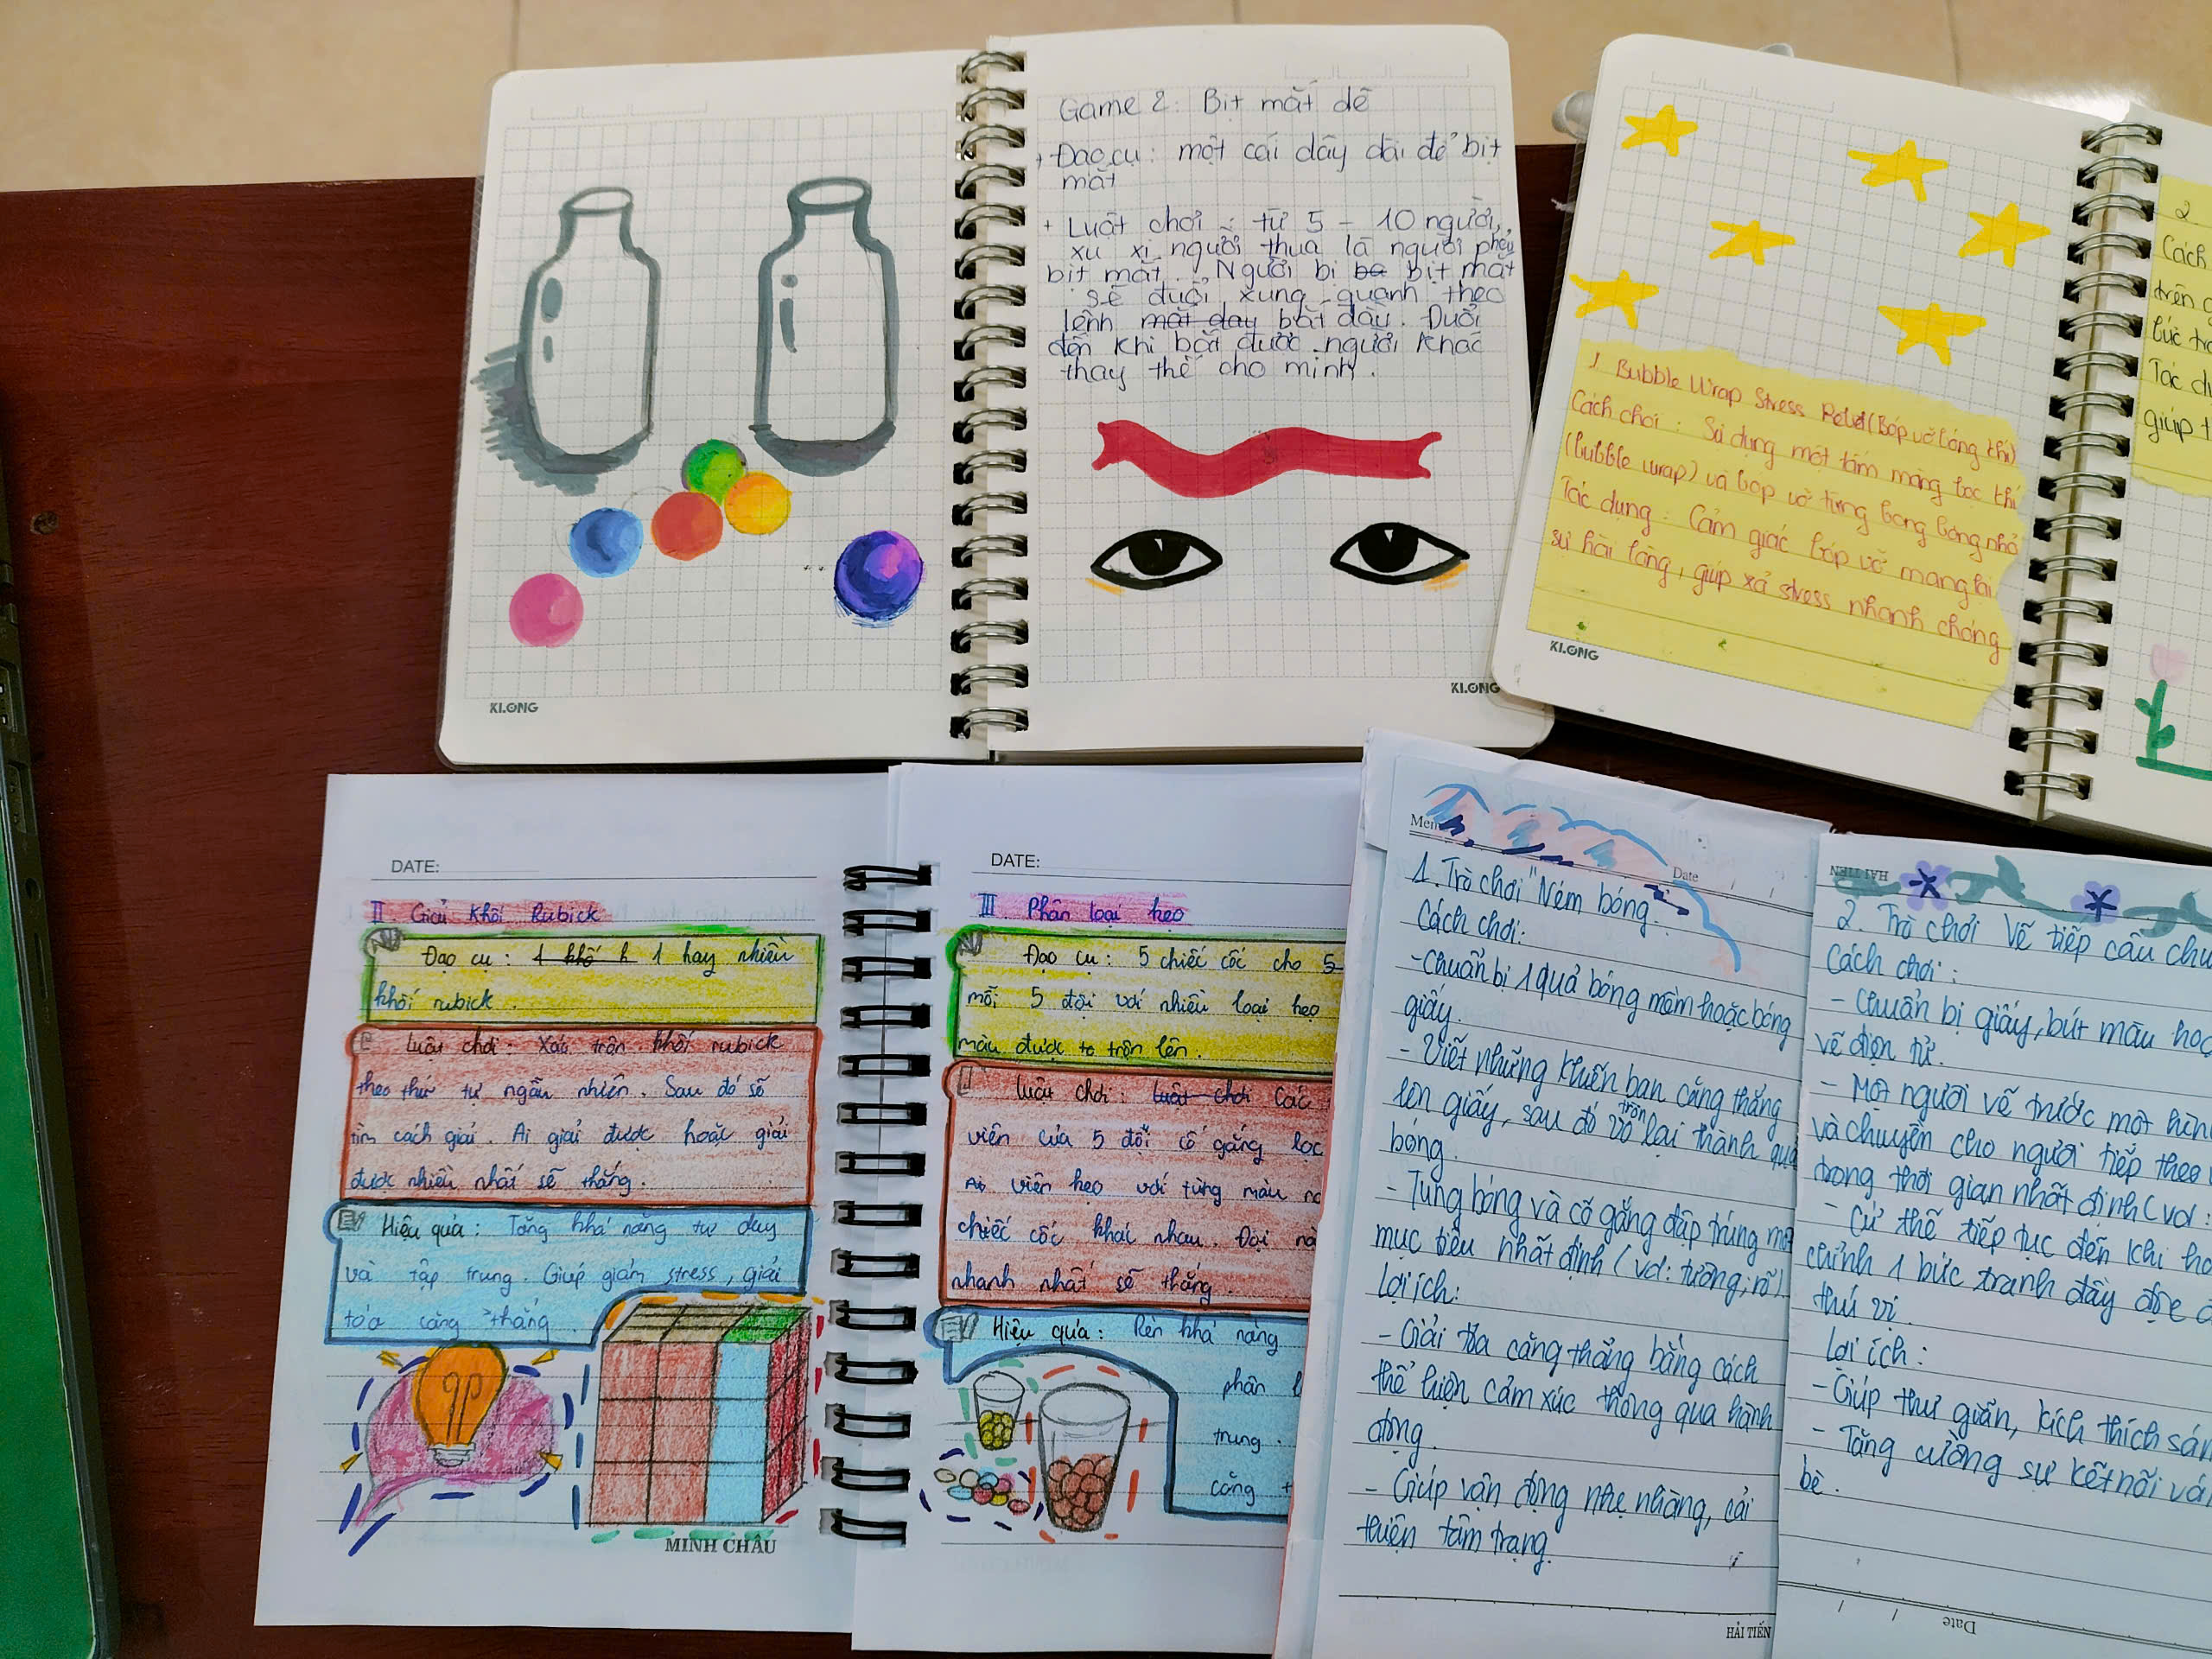 Game 2: Bịt mắt dê
+ Đạo cụ: một cái dây dài để bịt
mắt
+ Luật chơi: từ 5 - 10 người,
xu xi người thua là người phải
bịt mắt. Người bị ba bịt mắt
sẽ đuổi xung quanh theo
lệnh mắt day bắt đầu. Đuổi
đến khi bắt được người khác
thay thế cho mình.
KLONG
KLONG
1. Bubble Wrap Stress (Bóp vỡ bóng khí)
Cách chơi: Sử dụng một tấm màng bọc khí
(bubble wrap) và bóp vỡ từng bong bóng nhỏ
Tác dụng: Cảm giác bóp vỡ mang lại
sự hài lòng, giúp xả stress nhanh chóng
KLONG
2
Cách
trên
lúc
Tác
giúp
DATE:
II. Giải khối Rubick
Đạo cụ: 1 khố 1 hay nhiều
khối rubick.
Luật chơi: Xáo trộn khối rubick
theo thứ tự ngẫu nhiên. Sau đó sẽ
tìm cách giải. Ai giải được hoặc giải
được nhiều nhất sẽ thắng.
Hiệu quả: Tăng khả năng tư duy
và tập trung. Giúp giảm stress, giải
tỏa căng thẳng.
MINH CHÂU
DATE:
III. Phân loại kẹo
Đạo cụ: 5 chiếc cốc cho 5
mỗi 5 đội với nhiều loại kẹo
màu được to trộn lên.
Luật chơi: Luật chơi Các
viên của 5 đội cố gắng lọc
viên kẹo với từng màu
chiếc cốc khác nhau. Đội
nhanh nhất sẽ thắng.
Hiệu quả: Rèn khả năng
phân
trung.
căng
Date
1. Trò chơi "Ném bóng.
Cách chơi:
- Chuẩn bị 1 quả bóng mềm hoặc bóng
giấy.
- Viết những khiến bạn căng thẳng
lên giấy, sau đó vo tròn lại thành quả
bóng.
- Tung bóng và cố gắng đập trúng
mục tiêu nhất định (vd: tường, rổ)
Lợi ích:
- Giải tỏa căng thẳng bằng cách
thể hiện cảm xúc thông qua hành
động.
- Giúp vận động nhẹ nhàng, cải
thiện tâm trạng.
HẢI TIẾN
HẢI TIẾN
2. Trò chơi Vẽ tiếp câu
Cách chơi:
- Chuẩn bị giấy, bút màu
vẽ điện tử.
- Một người vẽ trước một
và chuyền cho người tiếp theo
trong thời gian nhất định (vd:
- Cứ thế tiếp tục đến khi
chỉnh 1 bức tranh đầy độc
thú vị.
Lợi ích:
- Giúp thư giãn, kích thích
- Tăng cường sự kết nối
bè.
Date